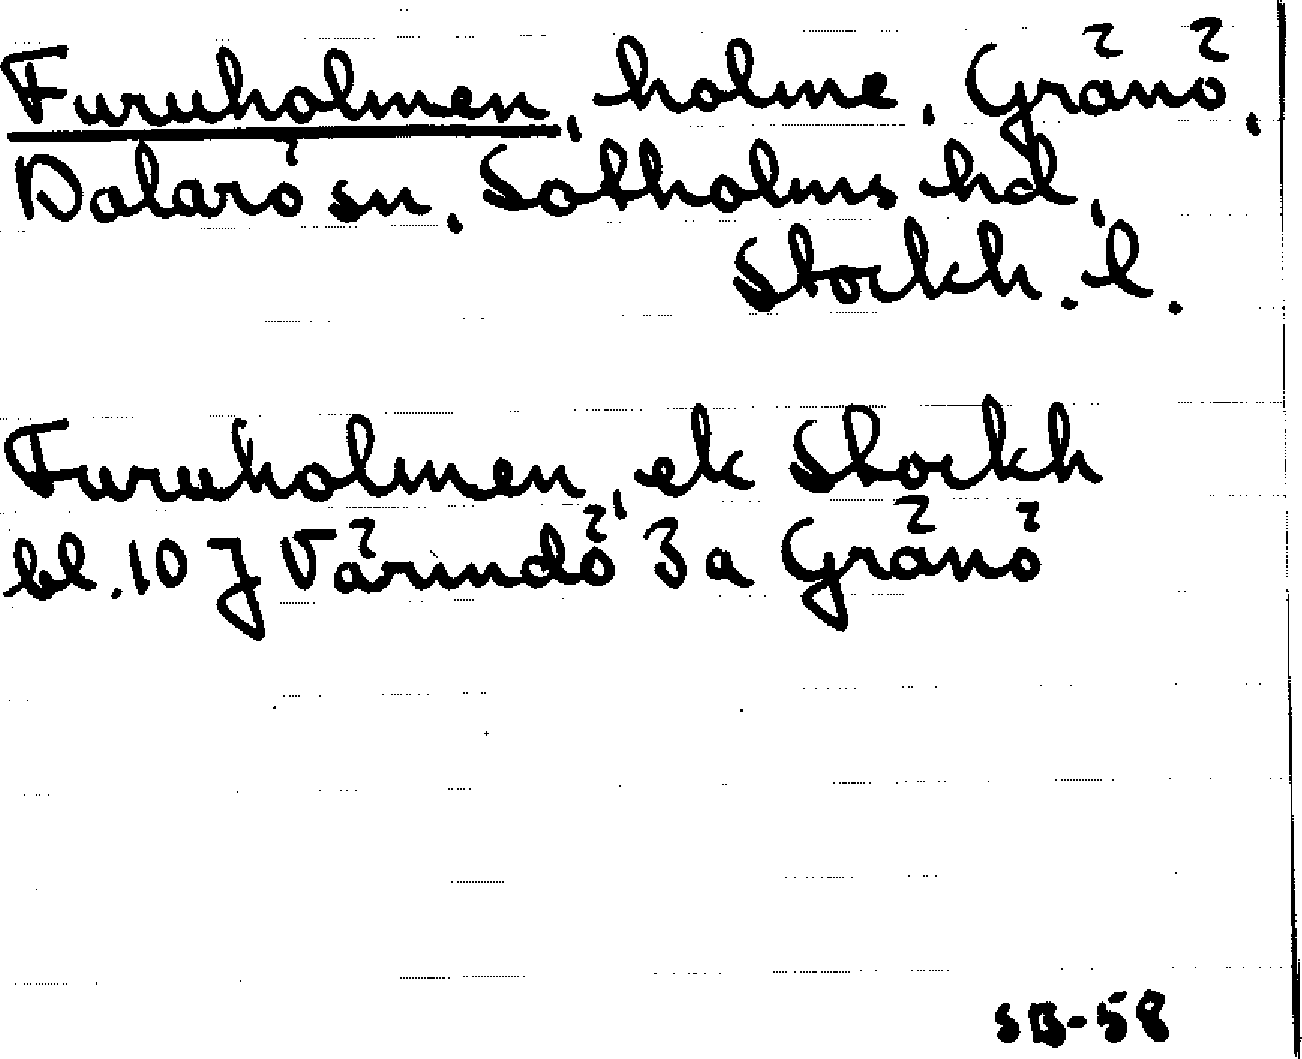 Furuholmen, holme, Gränö,
Dalarö sn, Sotholms hd,
Stockh. l.
Furuholmen, ek Stockh
bl. 10 J Värmdö 3a Gränö
SB-58